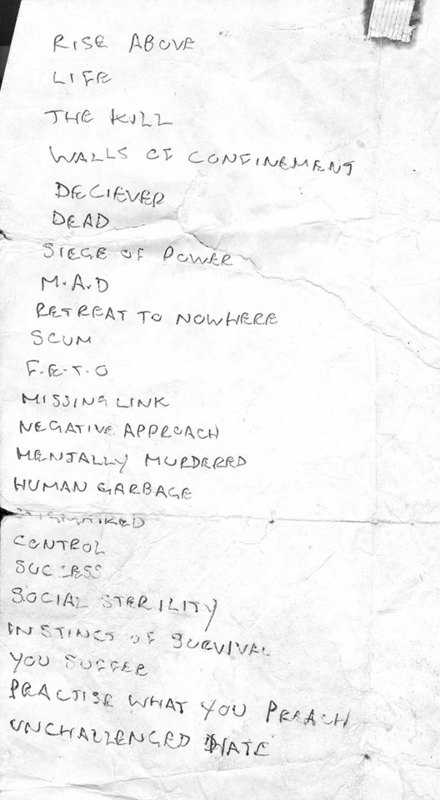 RISE ABOVE
LIFE
THE KILL
WALLS OF CONFINEMENT
DECIEVER
DEAD
SIEGE OF POWER
M.A.D
RETREAT TO NOWHERE
SCUM
F.E.T.O
MISSING LINK
NEGATIVE APPROACH
MENTALLY MURDERED
HUMAN GARBAGE
CONTROL
SUCCESS
SOCIAL STERILITY
INSTINCT OF SURVIVAL
YOU SUFFER
PRACTISE WHAT YOU PREACH
UNCHALLENGED HATE